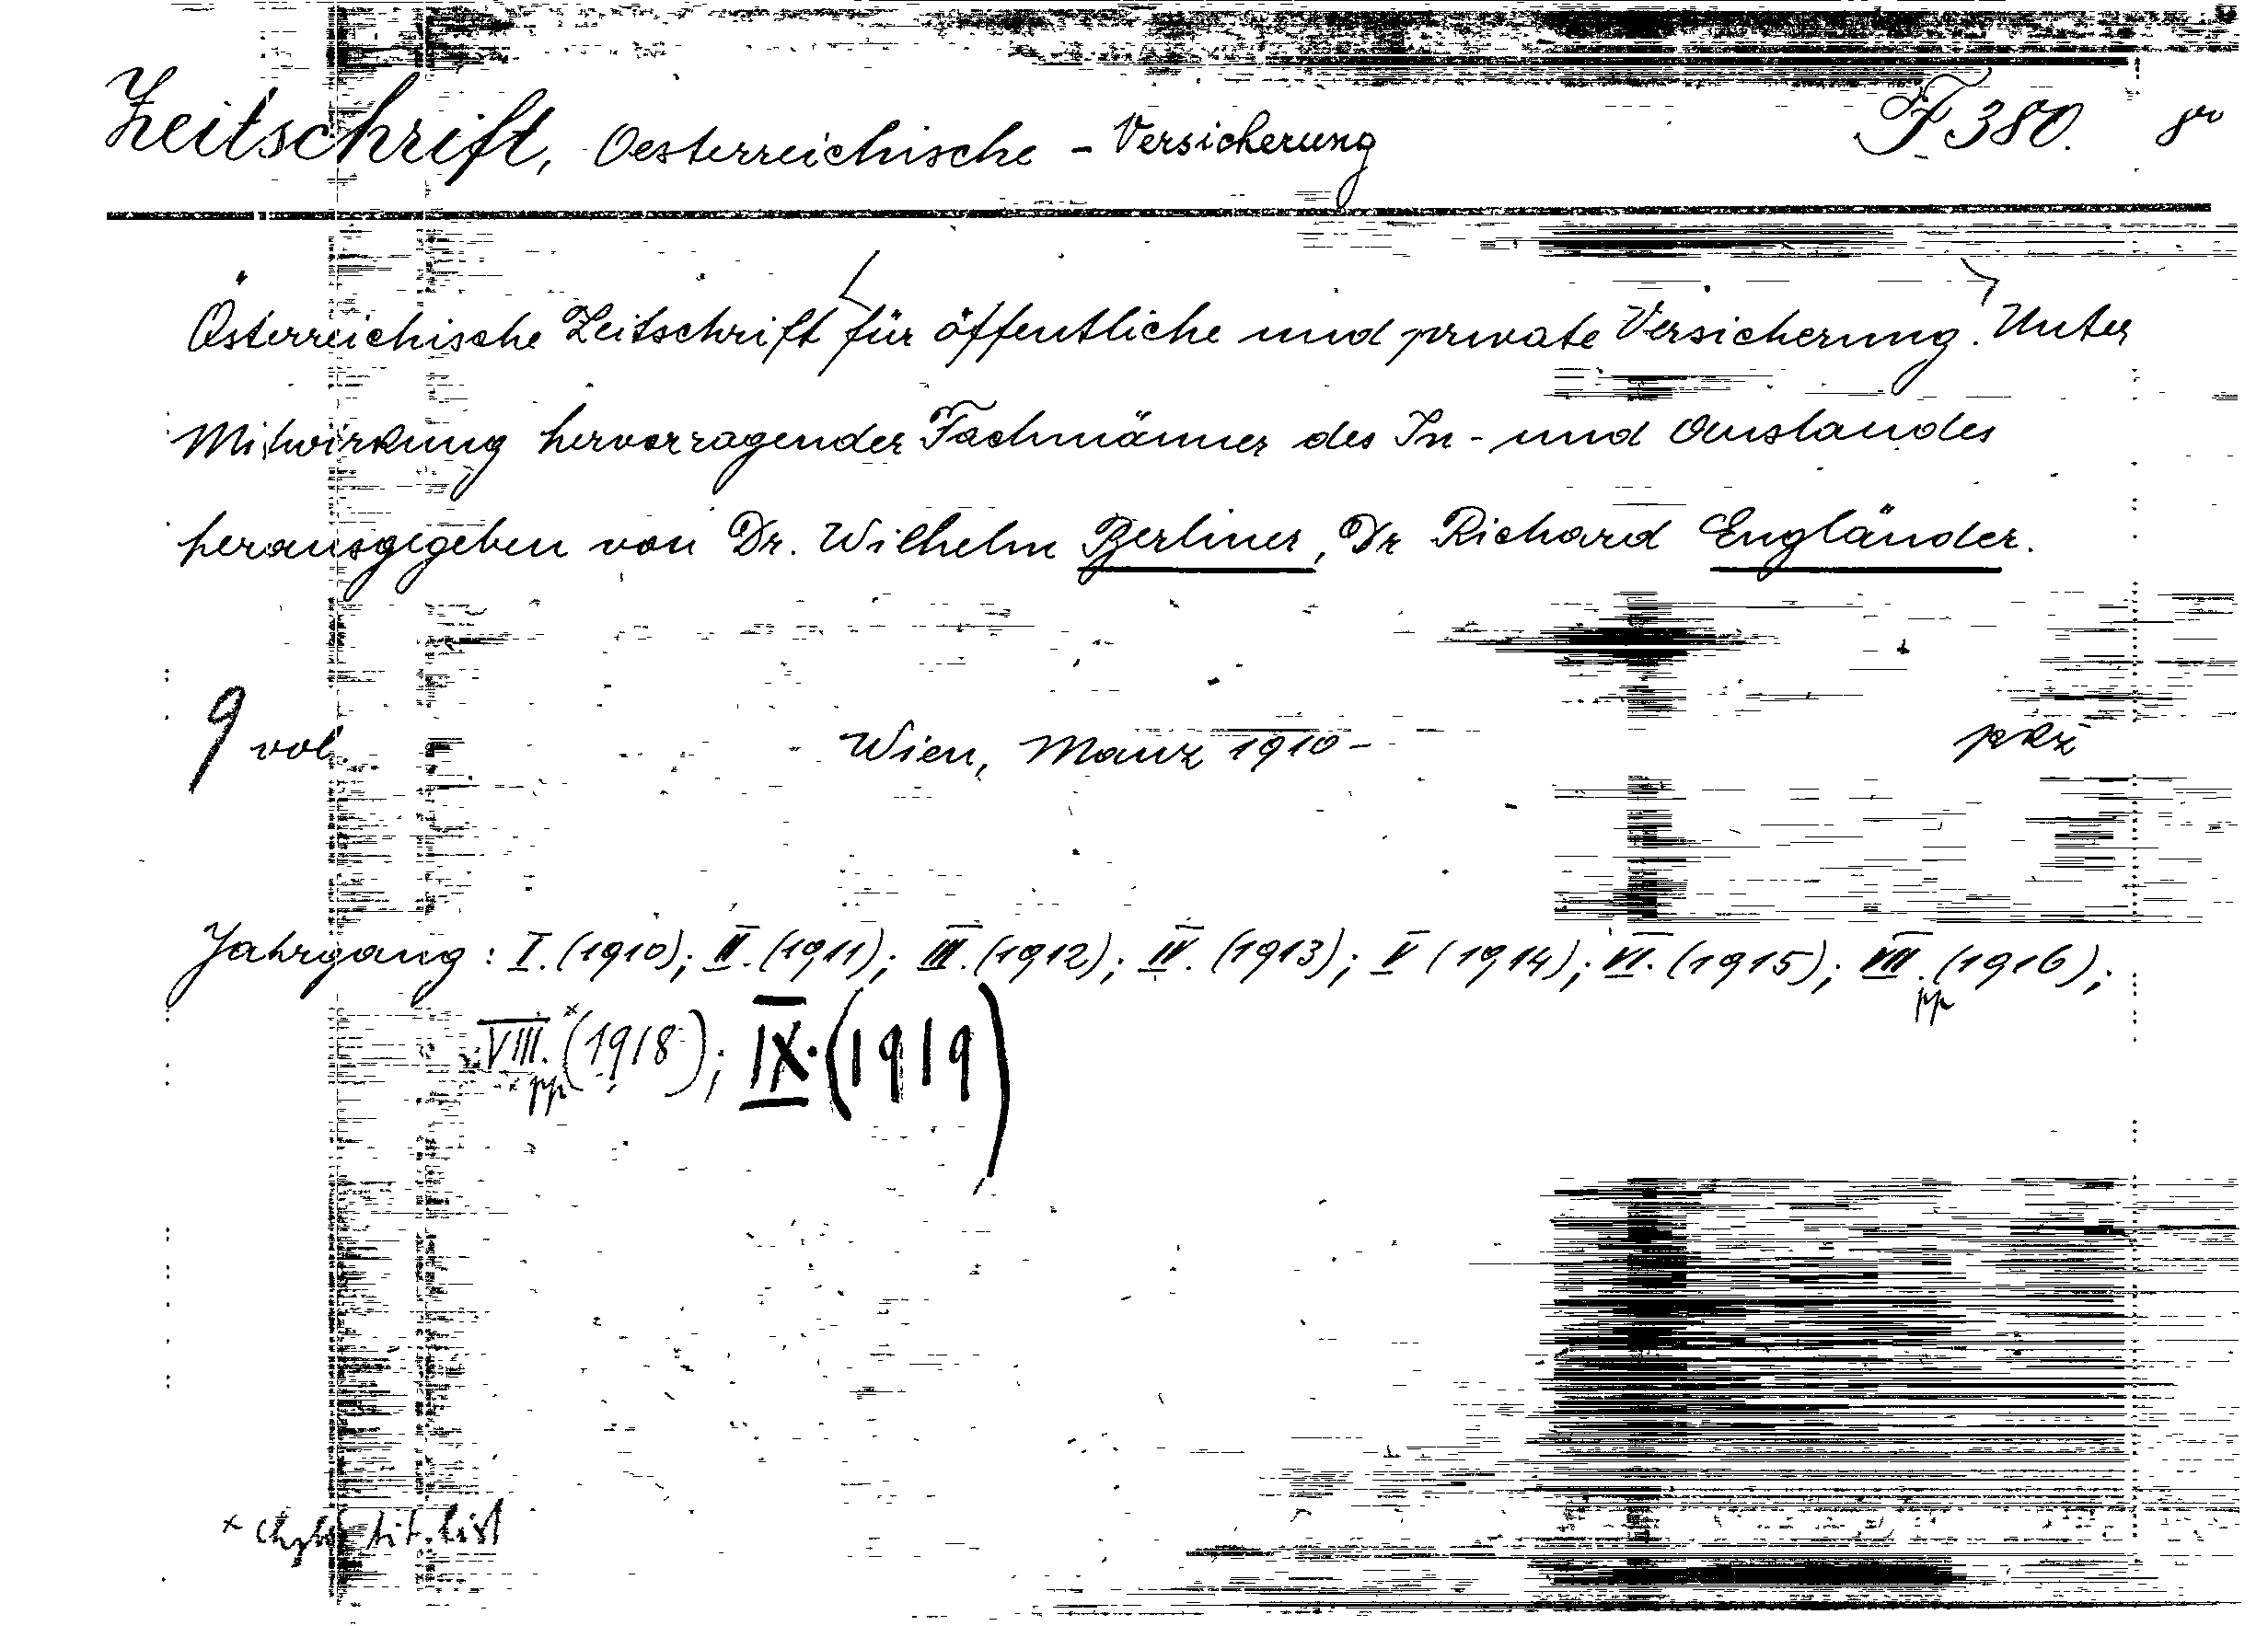 Zeitschrift, Oesterreichische - Versicherung F 380. 8vo
Österreichische Zeitschrift für öffentliche und private Versicherung. Unter
Mitwirkung hervorragender Fachmänner des In- und Auslandes
herausgegeben von Dr. Wilhelm Berliner, Dr Richard Engländer.
9 vol. Wien, Manz 1910- prž
Jahrgang: I. (1910); II. (1911); III. (1912); IV. (1913); V (1914); VI. (1915); VII. (1916);
pp
VIII.* (1918); IX. (1919)
pp
* chybí tit. list